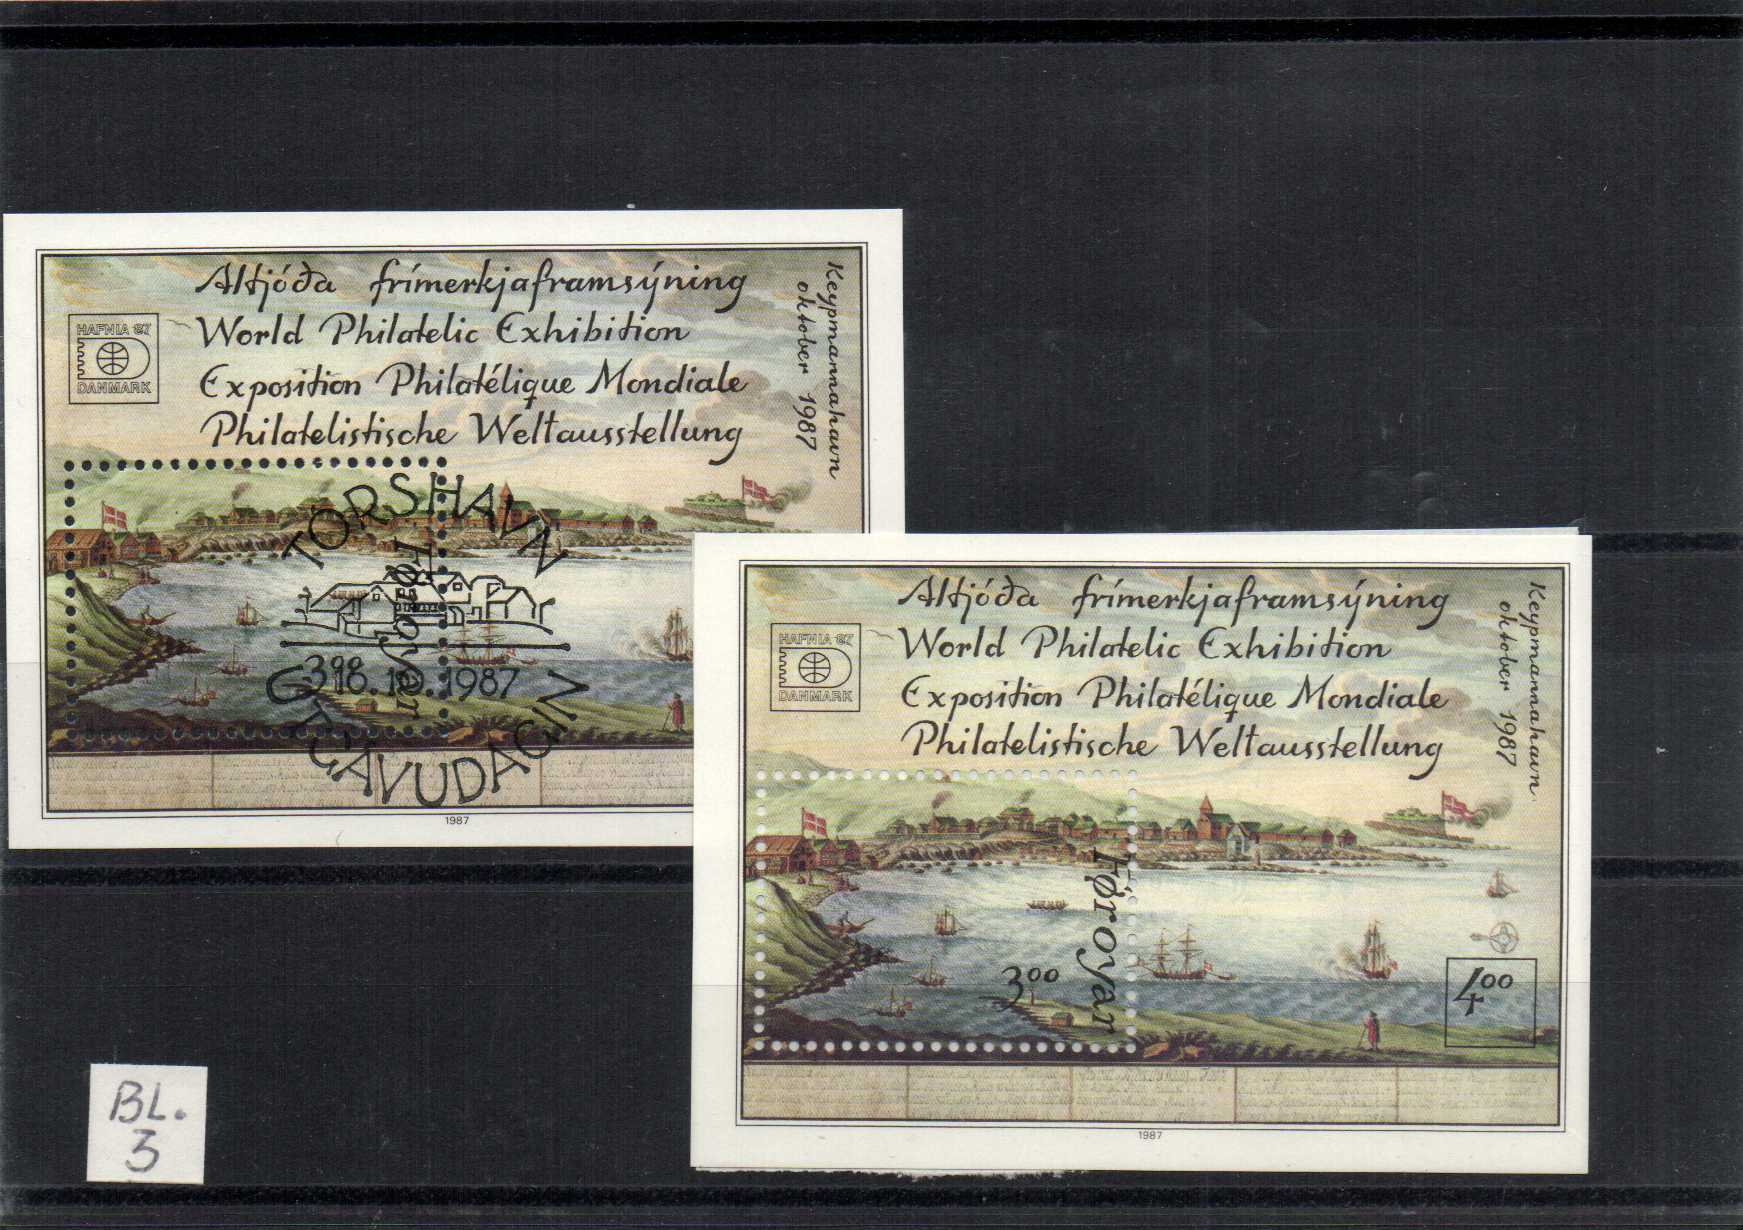 Altjóða frímerkjaframsýning
World Philatelic Exhibition
Exposition Philatélique Mondiale
Philatelistische Weltausstellung
Keypmannahavn
oktober 1987
HAFNIA 87
DANMARK
TÓRSHAVN
Føroyar
300
18.10.1987
ÚTGÁVUDAGIN
1987
Altjóða frímerkjaframsýning
World Philatelic Exhibition
Exposition Philatélique Mondiale
Philatelistische Weltausstellung
Keypmannahavn
oktober 1987
HAFNIA 87
DANMARK
Føroyar
300
400
1987
BL.
3